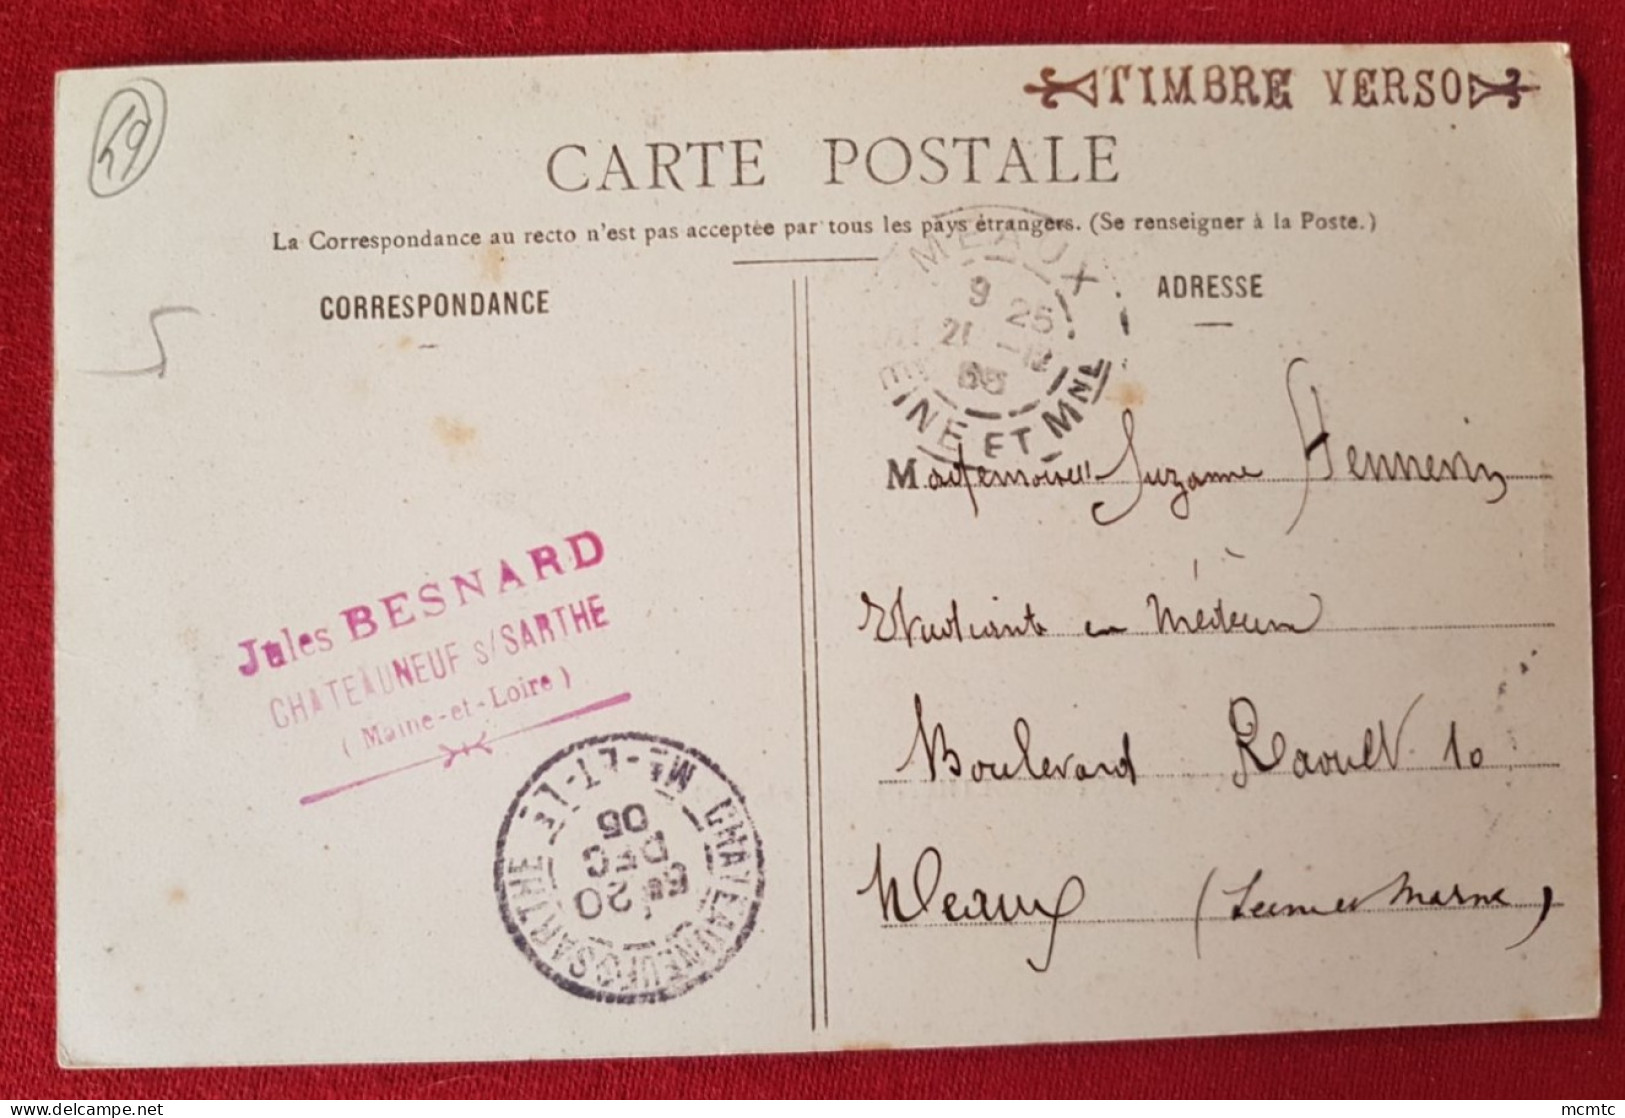 49
TIMBRE VERSO
CARTE POSTALE
La Correspondance au recto n'est pas acceptée par tous les pays étrangers. (Se renseigner à la Poste.)
CORRESPONDANCE
ADRESSE
MEAUX
9 25
21 -12
05
SEINE ET MNE
Mademoiselle Suzanne
Etudiante en Médecine
Boulevard Raoult 10
Meaux (Seine et Marne)
Jules BESNARD
CHATEAUNEUF S/SARTHE
(Maine-et-Loire)
CHATEAUNEUF-S-SARTHE
20
DEC
05
Mne-ET-LRE
mcmtc